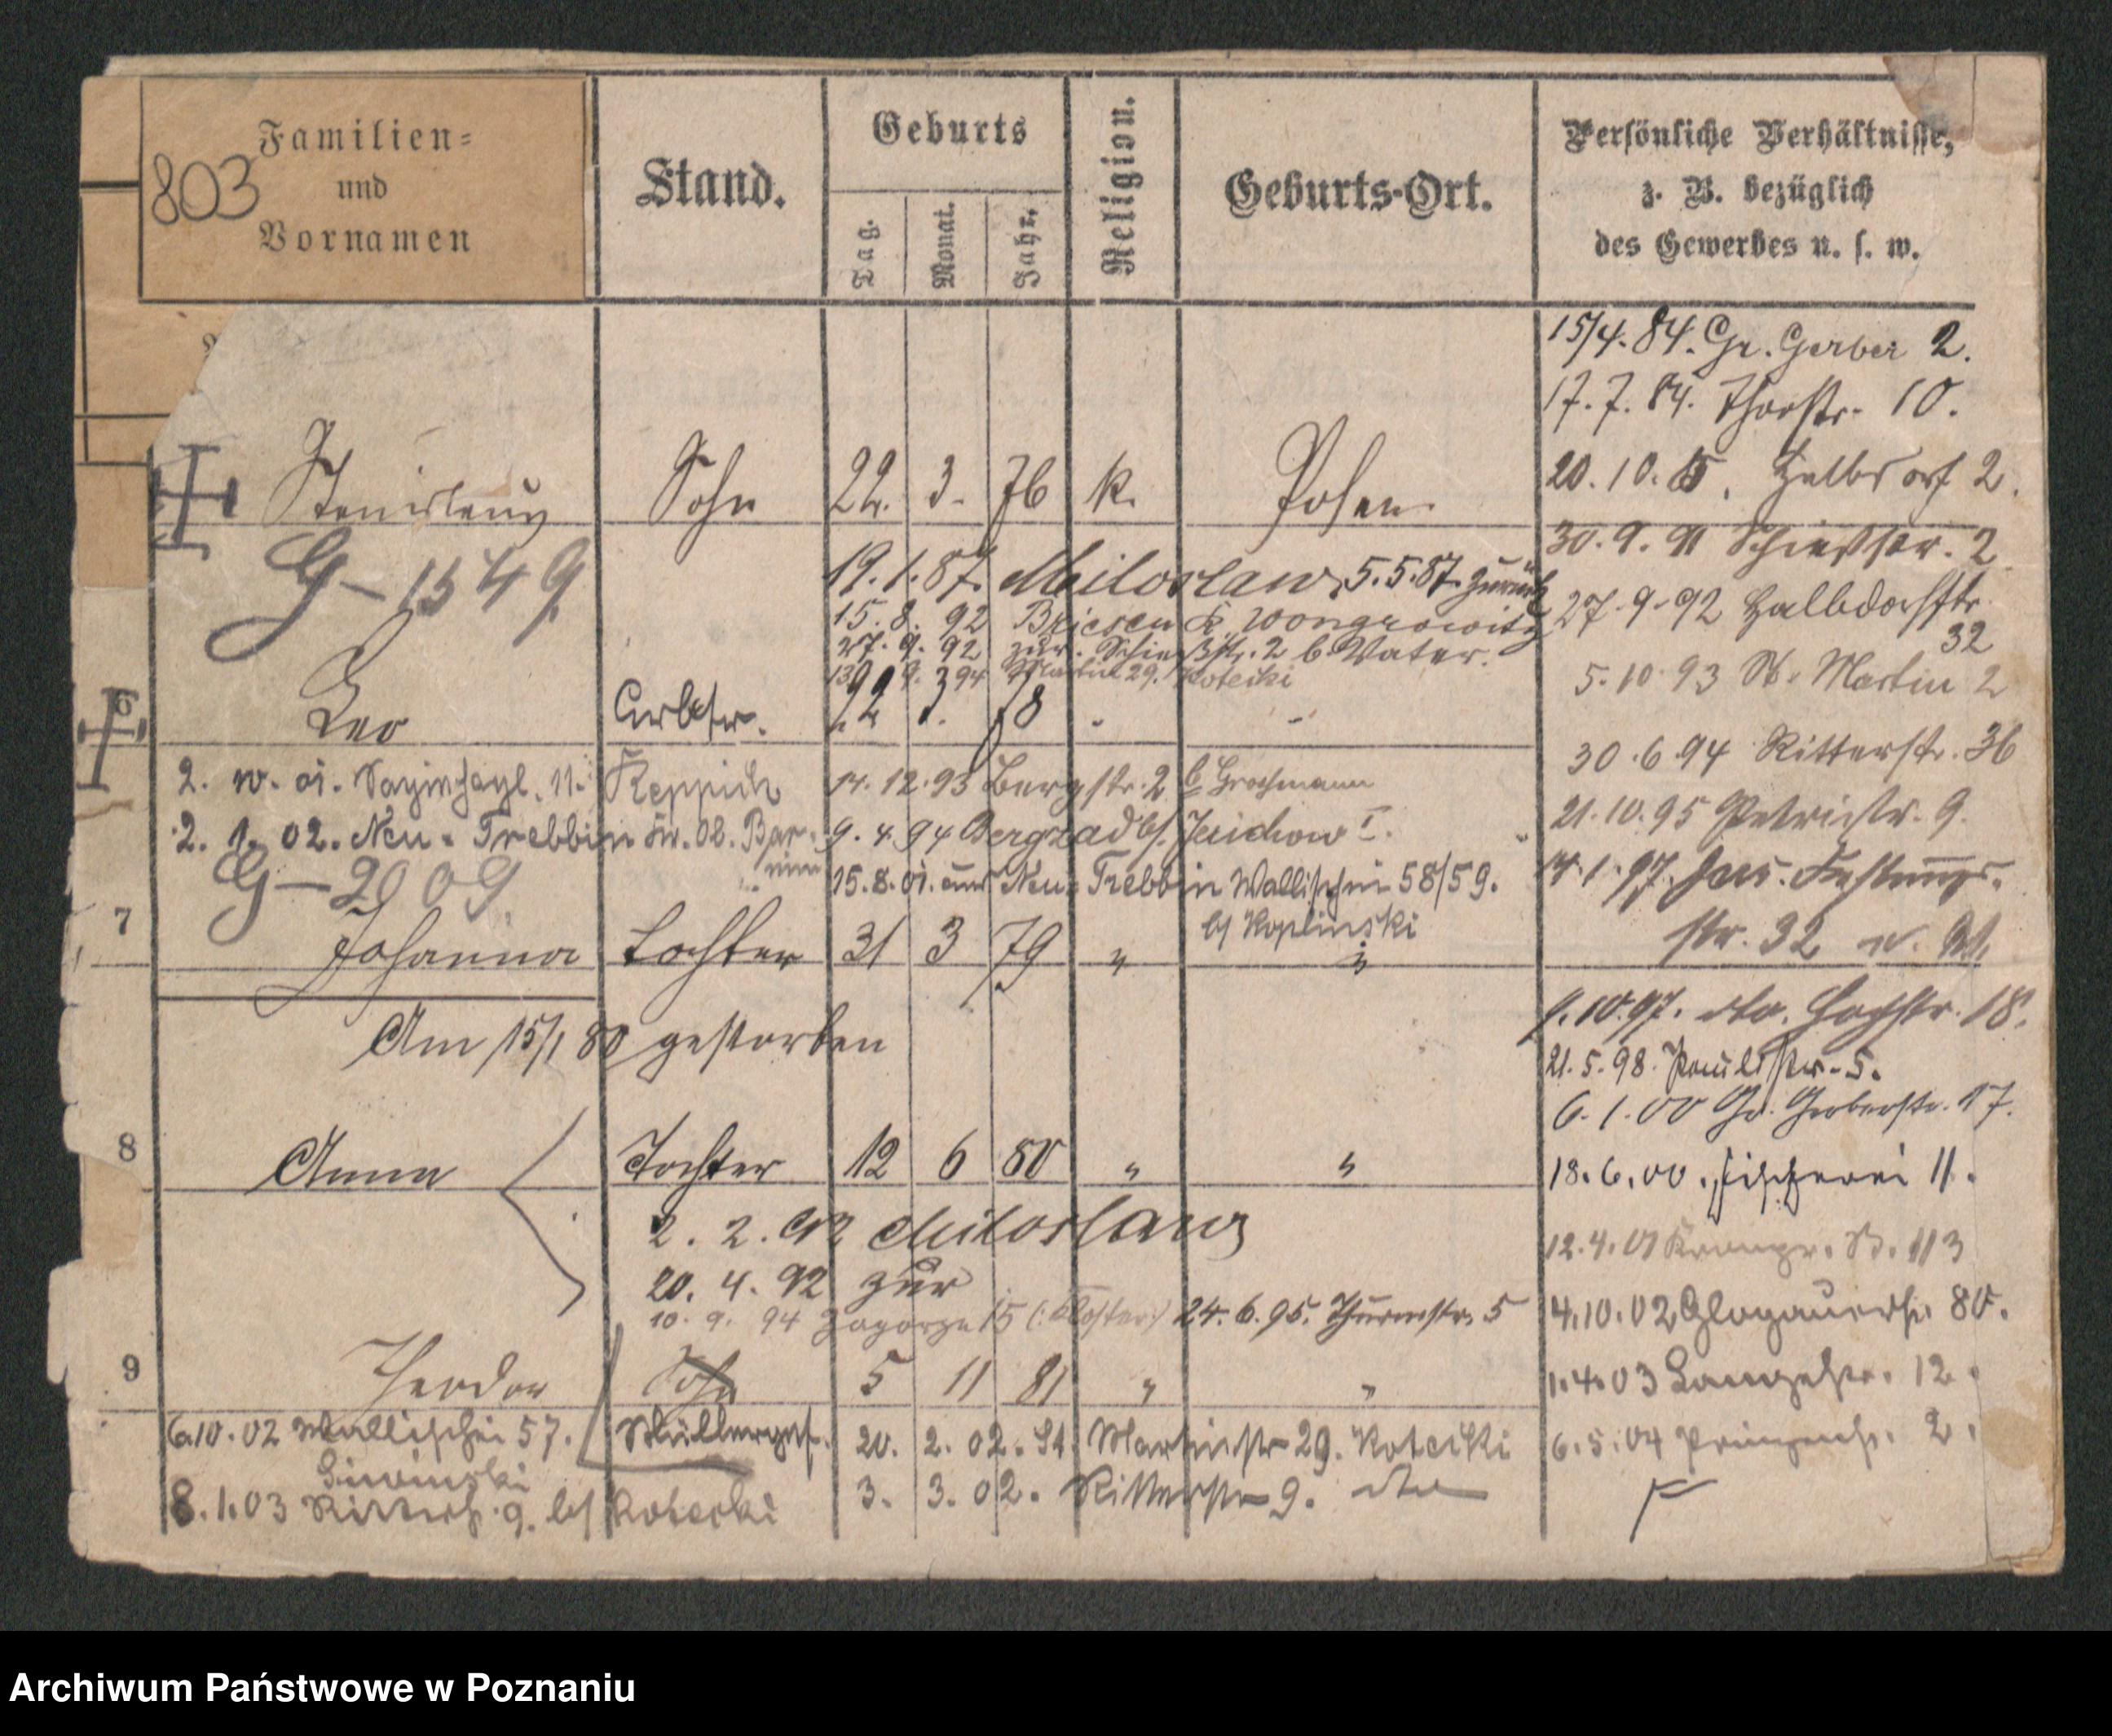 803
Familien-
und
Vornamen
Stand.
Geburts
Tag.
Monat.
Jahr.
Religion.
Geburts-Ort.
Persönliche Verhältnisse,
z. B. bezüglich
des Gewerbes u. s. w.
15/4. 84. Gr. Gerber 2.
17. 7. 84. Thorstr. 10.
20. 10. 85. Halbdorf 2.
Stanislaus Sohn 22. 3. 76 k. Posen
30. 9. 91 Schießstr. 2
G-1549
19. 1. 87. Miloslaw, 5. 5. 87 zurück
27. 9. 92 Halbdorfstr.
32
15. 8. 92 Briesen K. Wongrowitz
27. 9. 92 zur. Schießstr. 2 b. Vater.
Martin 29. Kotecki
5. 10. 93 St. Martin 2
6
Leo Arbtr. 22 3. 78 " "
30. 6. 94 Ritterstr. 36
2. 10. 01. 11. Keppich 14. 12. 93 Bergstr. 2 b Grossmann
21. 10. 95 Petristr. 9.
2. 1. 02. Neu-Trebbin Kr. Ob. Bar-
nim
9. 4. 94 Bergzadbf. Jerichow I.
G-2009.
15. 8. 01. aus Neu-Trebbin Wallischei 58/59.
b/ Koplinski
14. 1. 97. Jers. Festungs-
str. 32 n. W.
7
Johanna Tochter 31 3 79 " "
1. 10. 97. do. Hochstr. 18.
Am 15/1 80 gestorben
21. 5. 98. Paulistr. 5.
6. 1. 00 Gr. Gerberstr. 17.
8
Anna Tochter 12 6 80 " "
18. 6. 00. Fischerei 11.
2. 2. 92 Miloslaw
12. 4. 01 Kronpr. St. 113
20. 4. 92 zur
10. 9. 94 Zagorze 15 (: Kloster:) 24. 6. 95. Thurmstr. 5
4. 10. 02 Glogauerstr. 80.
9
Theodor Sohn 5 11 81 " "
1. 4. 03 Langestr. 12.
6. 10. 02 Wallischei 57. Müllerges. 20. 2. 02. St. Martinstr 29. Kotecki
6. 5. 04 Prinzenstr. 2.
Siwinski
8. 1. 03 Ritterstr. 9. b/ Kotecki 3. 3. 02. Ritterstr 9. dto
Archiwum Państwowe w Poznaniu